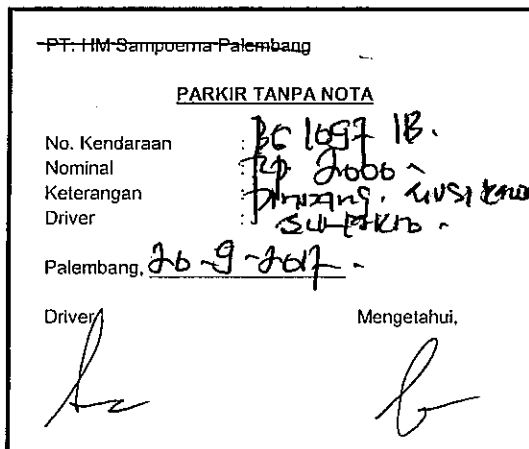 PT. HM Sampoerna Palembang
PARKIR TANPA NOTA
No. Kendaraan : BG 1697 IB.
Nominal : Rp. 2000
Keterangan :
Driver :
Palembang, 20-9-2017.
Driver Mengetahui,